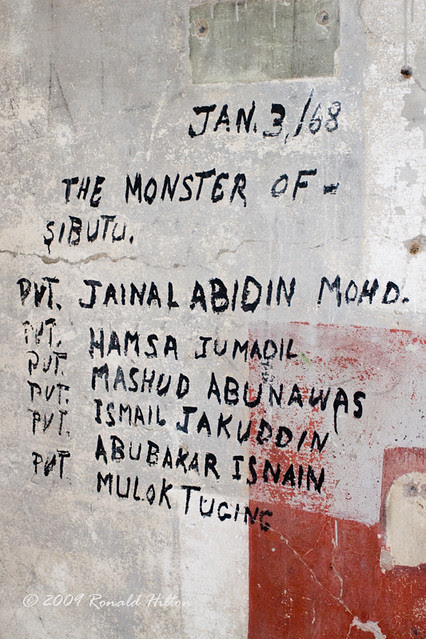 JAN. 3, /68
THE MONSTER OF -
SIBUTU.
PVT. JAINAL ABIDIN MOHD.
PVT. HAMSA JUMADIL
PVT. MASHUD ABUNAWAS
PVT. ISMAIL JAKUDDIN
PVT. ABUBAKAR ISNAIN
PVT MULOK TUGING
© 2009 Ronald Hilton